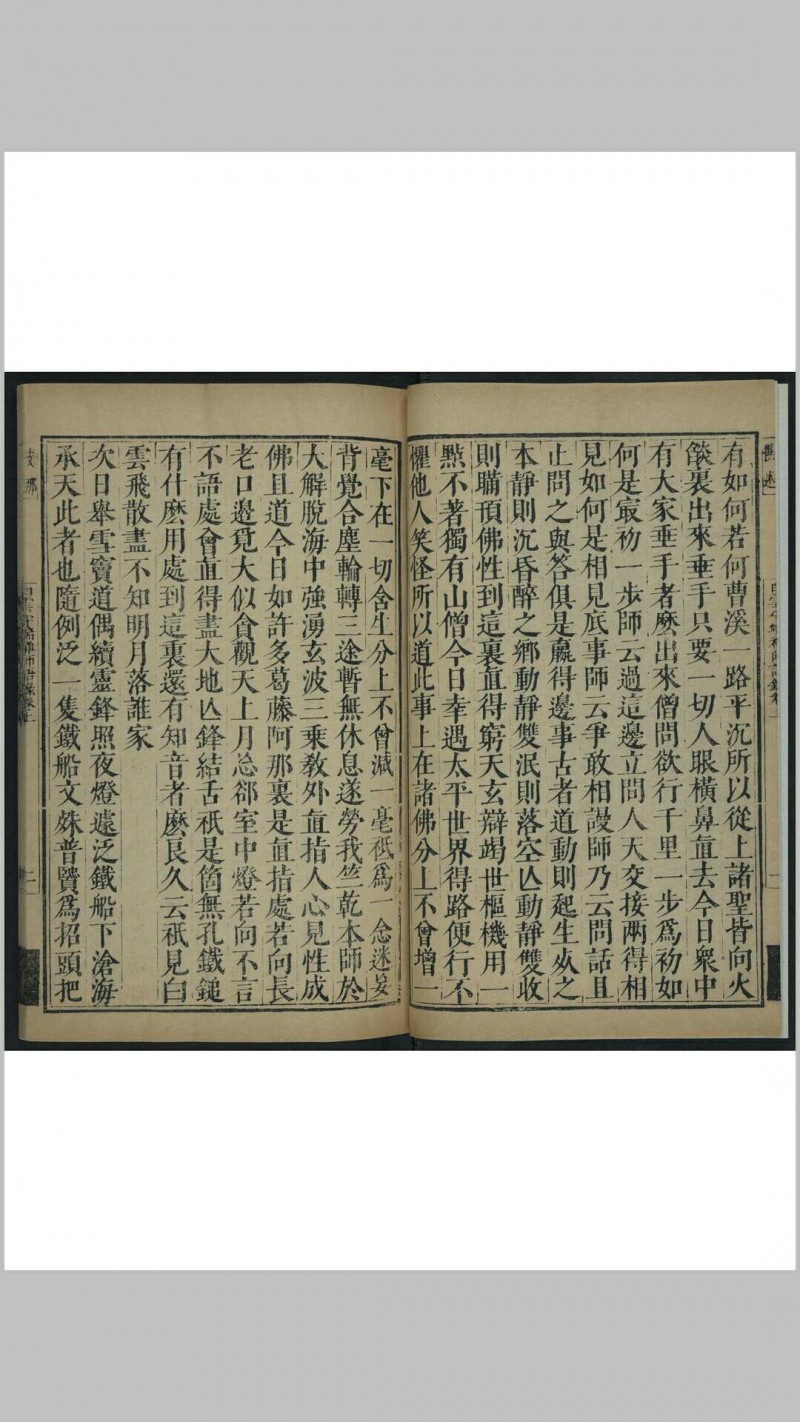 有如何若何曹溪一路平沉所以從上諸聖皆向火
燄裏出來垂手只要一切人眼橫鼻直去今日衆中
有大家垂手者麽出來僧問欲行千里一步爲初如
何是最初一步師云過這邊立問人天交接兩得相
見如何是相見底事師云爭敢相謾師乃云問話且
止問之與答俱是贏得邊事古者道動則起生死之
本靜則沉昏醉之鄉動靜雙泯則落空亾動靜雙收
則瞞頇佛性到這裏直得窮天玄辯竭世樞機用一
點不著獨有山僧今日幸遇太平世界得路便行不
懼他人笑怪所以道此事上在諸佛分上不曾增一
毫下在一切含生分上不曾減一毫秪爲一念迷妄
背覺合塵輪轉三途暫無休息遂勞我竺乾本師於
大解脫海中強湧玄波三乗教外直指人心見性成
佛且道今日如許多葛藤阿那裏是直指處若向長
老口邊覓大似貪觀天上月忩郤室中燈若向不言
不語處會直得盡大地亾鋒結舌秖是箇無孔鐵鎚
有什麽用處到這裏還有知音者麽良久云秖見白
雲飛散盡不知明月落誰家
次日舉雪竇道偶續靈鋒照夜燈遠泛鐵船下滄海
承天此者也隨例泛一隻鐵船文殊普賢爲招頭把
二